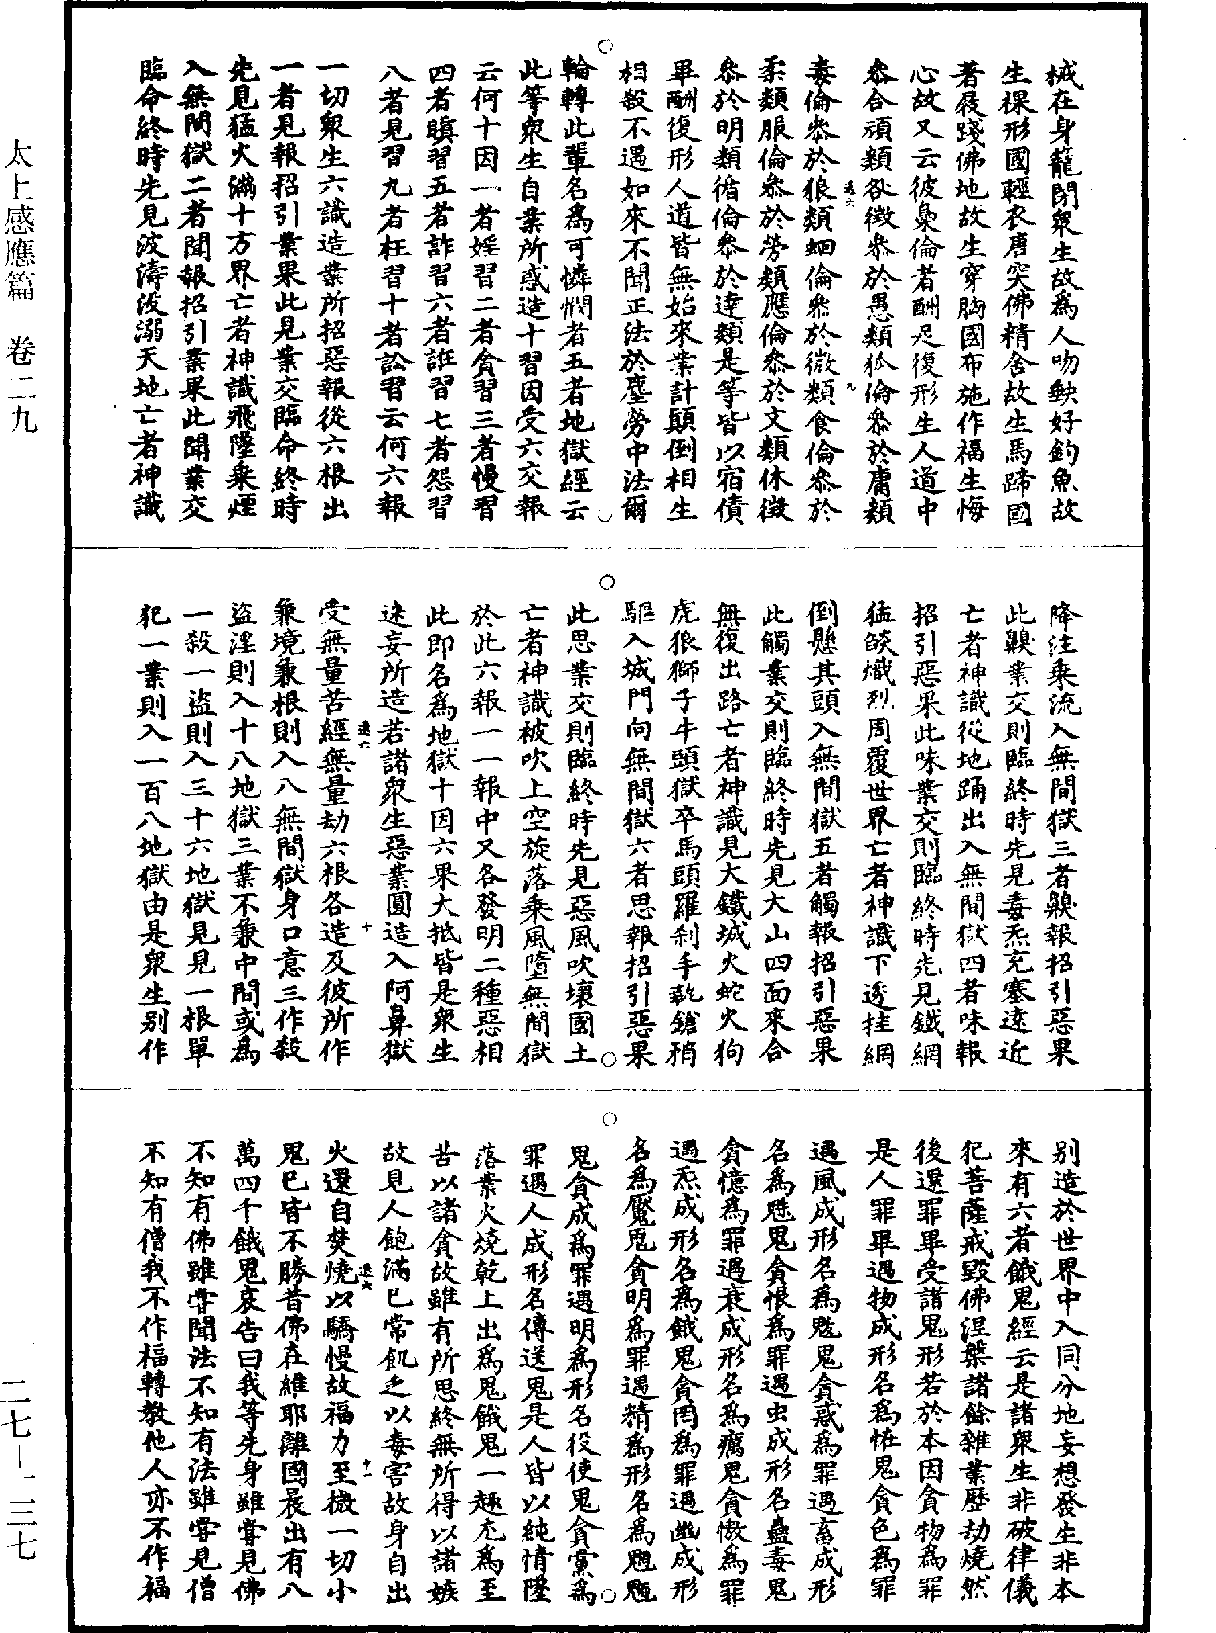 械在身籠閉衆生故爲人吻缺好釣魚故
生裸形國輕衣唐突佛精舍故生馬蹄國
著屐踐佛地故生穿胸國布施作福生悔
心故又云彼梟倫者酬足復形生人道中
叅合頑類咎徵叅於愚類狐倫叅於庸類
毒倫叅於狼類蛔倫叅於微類食倫叅於
柔類服倫叅於勞類應倫叅於文類休徵
叅於明類循倫叅於達類是等皆以宿債
畢酬復形人道皆無始來業計顛倒相生
相殺不遇如來不聞正法於塵勞中法爾
輪轉此輩名爲可憐憫者五者地獄經云
此等衆生自業所惑造十習因受六交報
云何十因一者婬習二者貪習三者慢習
四者瞋習五者詐習六者誑習七者怨習
八者見習九者枉習十者訟習云何六報
一切衆生六識造業所招惡報從六根出
一者見報招引業果此見業交臨命終時
先見猛火滿十方界亡者神識飛墜乘煙
入無間獄二者聞報招引業果此聞業交
臨命終時先見波濤沒溺天地亡者神識
降注乘流入無間獄三者齅報招引惡果
此齅業交則臨終時先見毒炁充塞遠近
亡者神識從地踊出入無間獄四者味報
招引惡果此味業交則臨終時先見鐵網
猛燄熾烈周覆世界亡者神識下透挂網
倒懸其頭入無間獄五者觸報招引惡果
此觸業交則臨終時先見大山四面來合
無復出路亡者神識見大鐵城火蛇火狗
虎狼獅子牛頭獄卒馬頭羅剎手執鎗矟
驅入城門向無間獄六者思報招引惡果
此思業交則臨終時先見惡風吹壞國土
亡者神識被吹上空旋落乘風墮無間獄
於此六報一一報中又各發明二種惡相
此即名爲地獄十因六果大抵皆是衆生
迷妄所造若諸衆生惡業圓造入阿鼻獄
受無量苦經無量劫六根各造及彼所作
兼境兼根則入八無間獄身口意三作殺
盜淫則入十八地獄三業不兼中間或爲
一殺一盜則入三十六地獄見見一根單
犯一業則入一百八地獄由是衆生别作
别造於世界中入同分地妄想發生非本
來有六者餓鬼經云是諸衆生非破律儀
犯菩薩戒毀佛涅槃諸餘雜業歷劫燒然
後還罪畢受諸鬼形若於本因貪物爲罪
是人罪畢遇物成形名爲恠鬼貪色爲罪
遇風成形名爲魃鬼貪惑爲罪遇畜成形
名爲魅鬼貪恨爲罪遇虫成形名蠱毒鬼
貪憶爲罪遇衰成形名爲癘鬼貪慠爲罪
遇炁成形名爲餓鬼貪罔爲罪遇幽成形
名爲魘鬼貪明爲罪遇精爲形名爲魍魎
鬼貪成爲罪遇明爲形名役使鬼貪黨爲
罪遇人成形名傳送鬼是人皆以純情墜
落業火燒乾上出爲鬼餓鬼一趣尤爲至
苦以諸貪故雖有所思終無所得以諸嫉
故見人飽滿已常飢乏以毒害故身自出
火還自焚燒以驕慢故福力至微一切小
鬼已皆不勝昔佛在維耶離國晨出有八
萬四千餓鬼哀告曰我等先身雖嘗見佛
不知有佛雖嘗聞法不知有法雖嘗見僧
不知有僧我不作福轉教他人亦不作福
太上感應篇 卷二九
二七—一三七